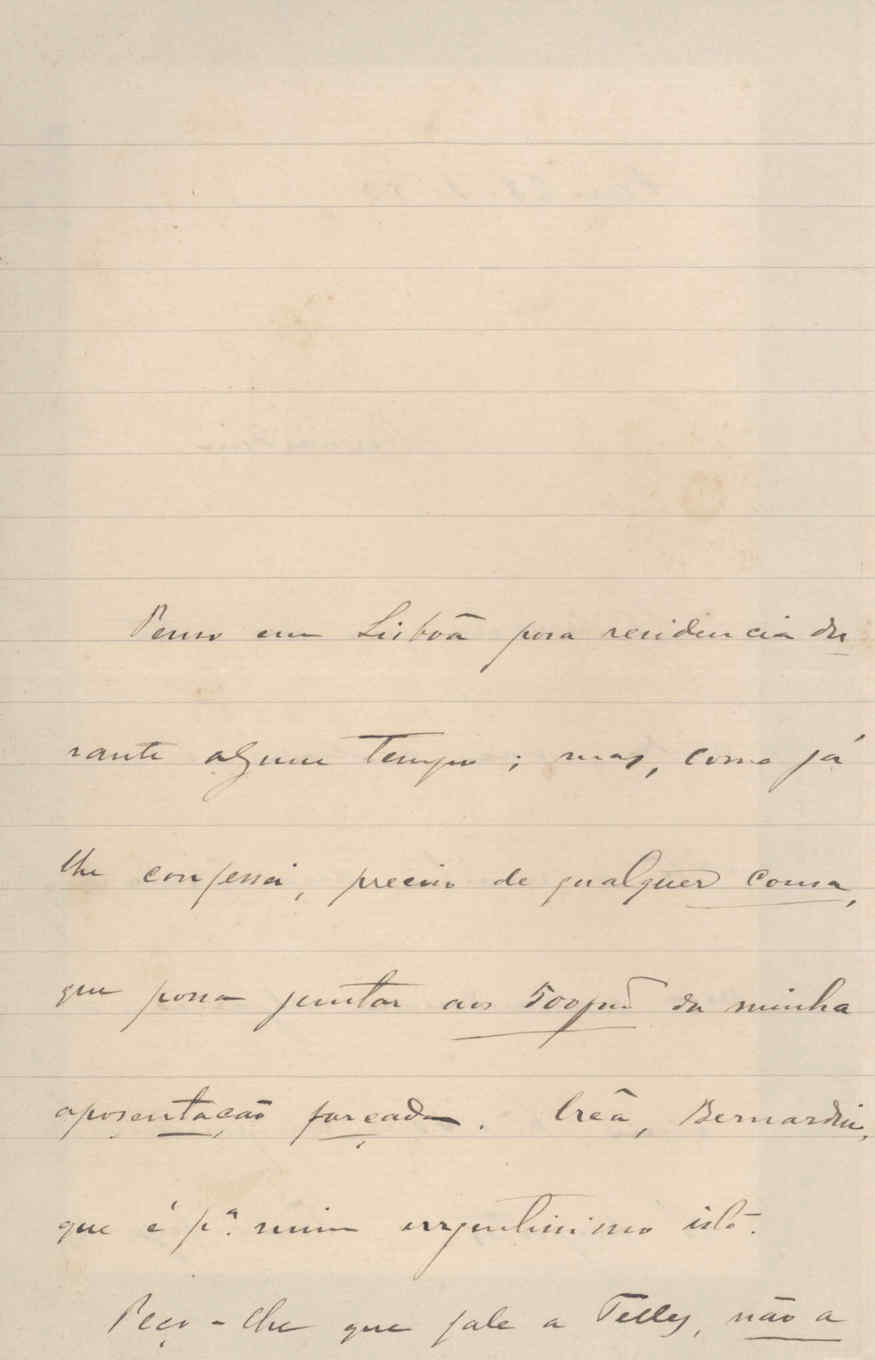 Penso em Lisbôa para residencia du
rante algum tempo; mas, como já
lhe confessei, preciso de qualquer cousa,
que possa juntar aos da minha
aposentação forçada. Crêa, Bernardin,
que é pª. mim urgentissimo isto.
Peço-lhe que fale a Telles, não a